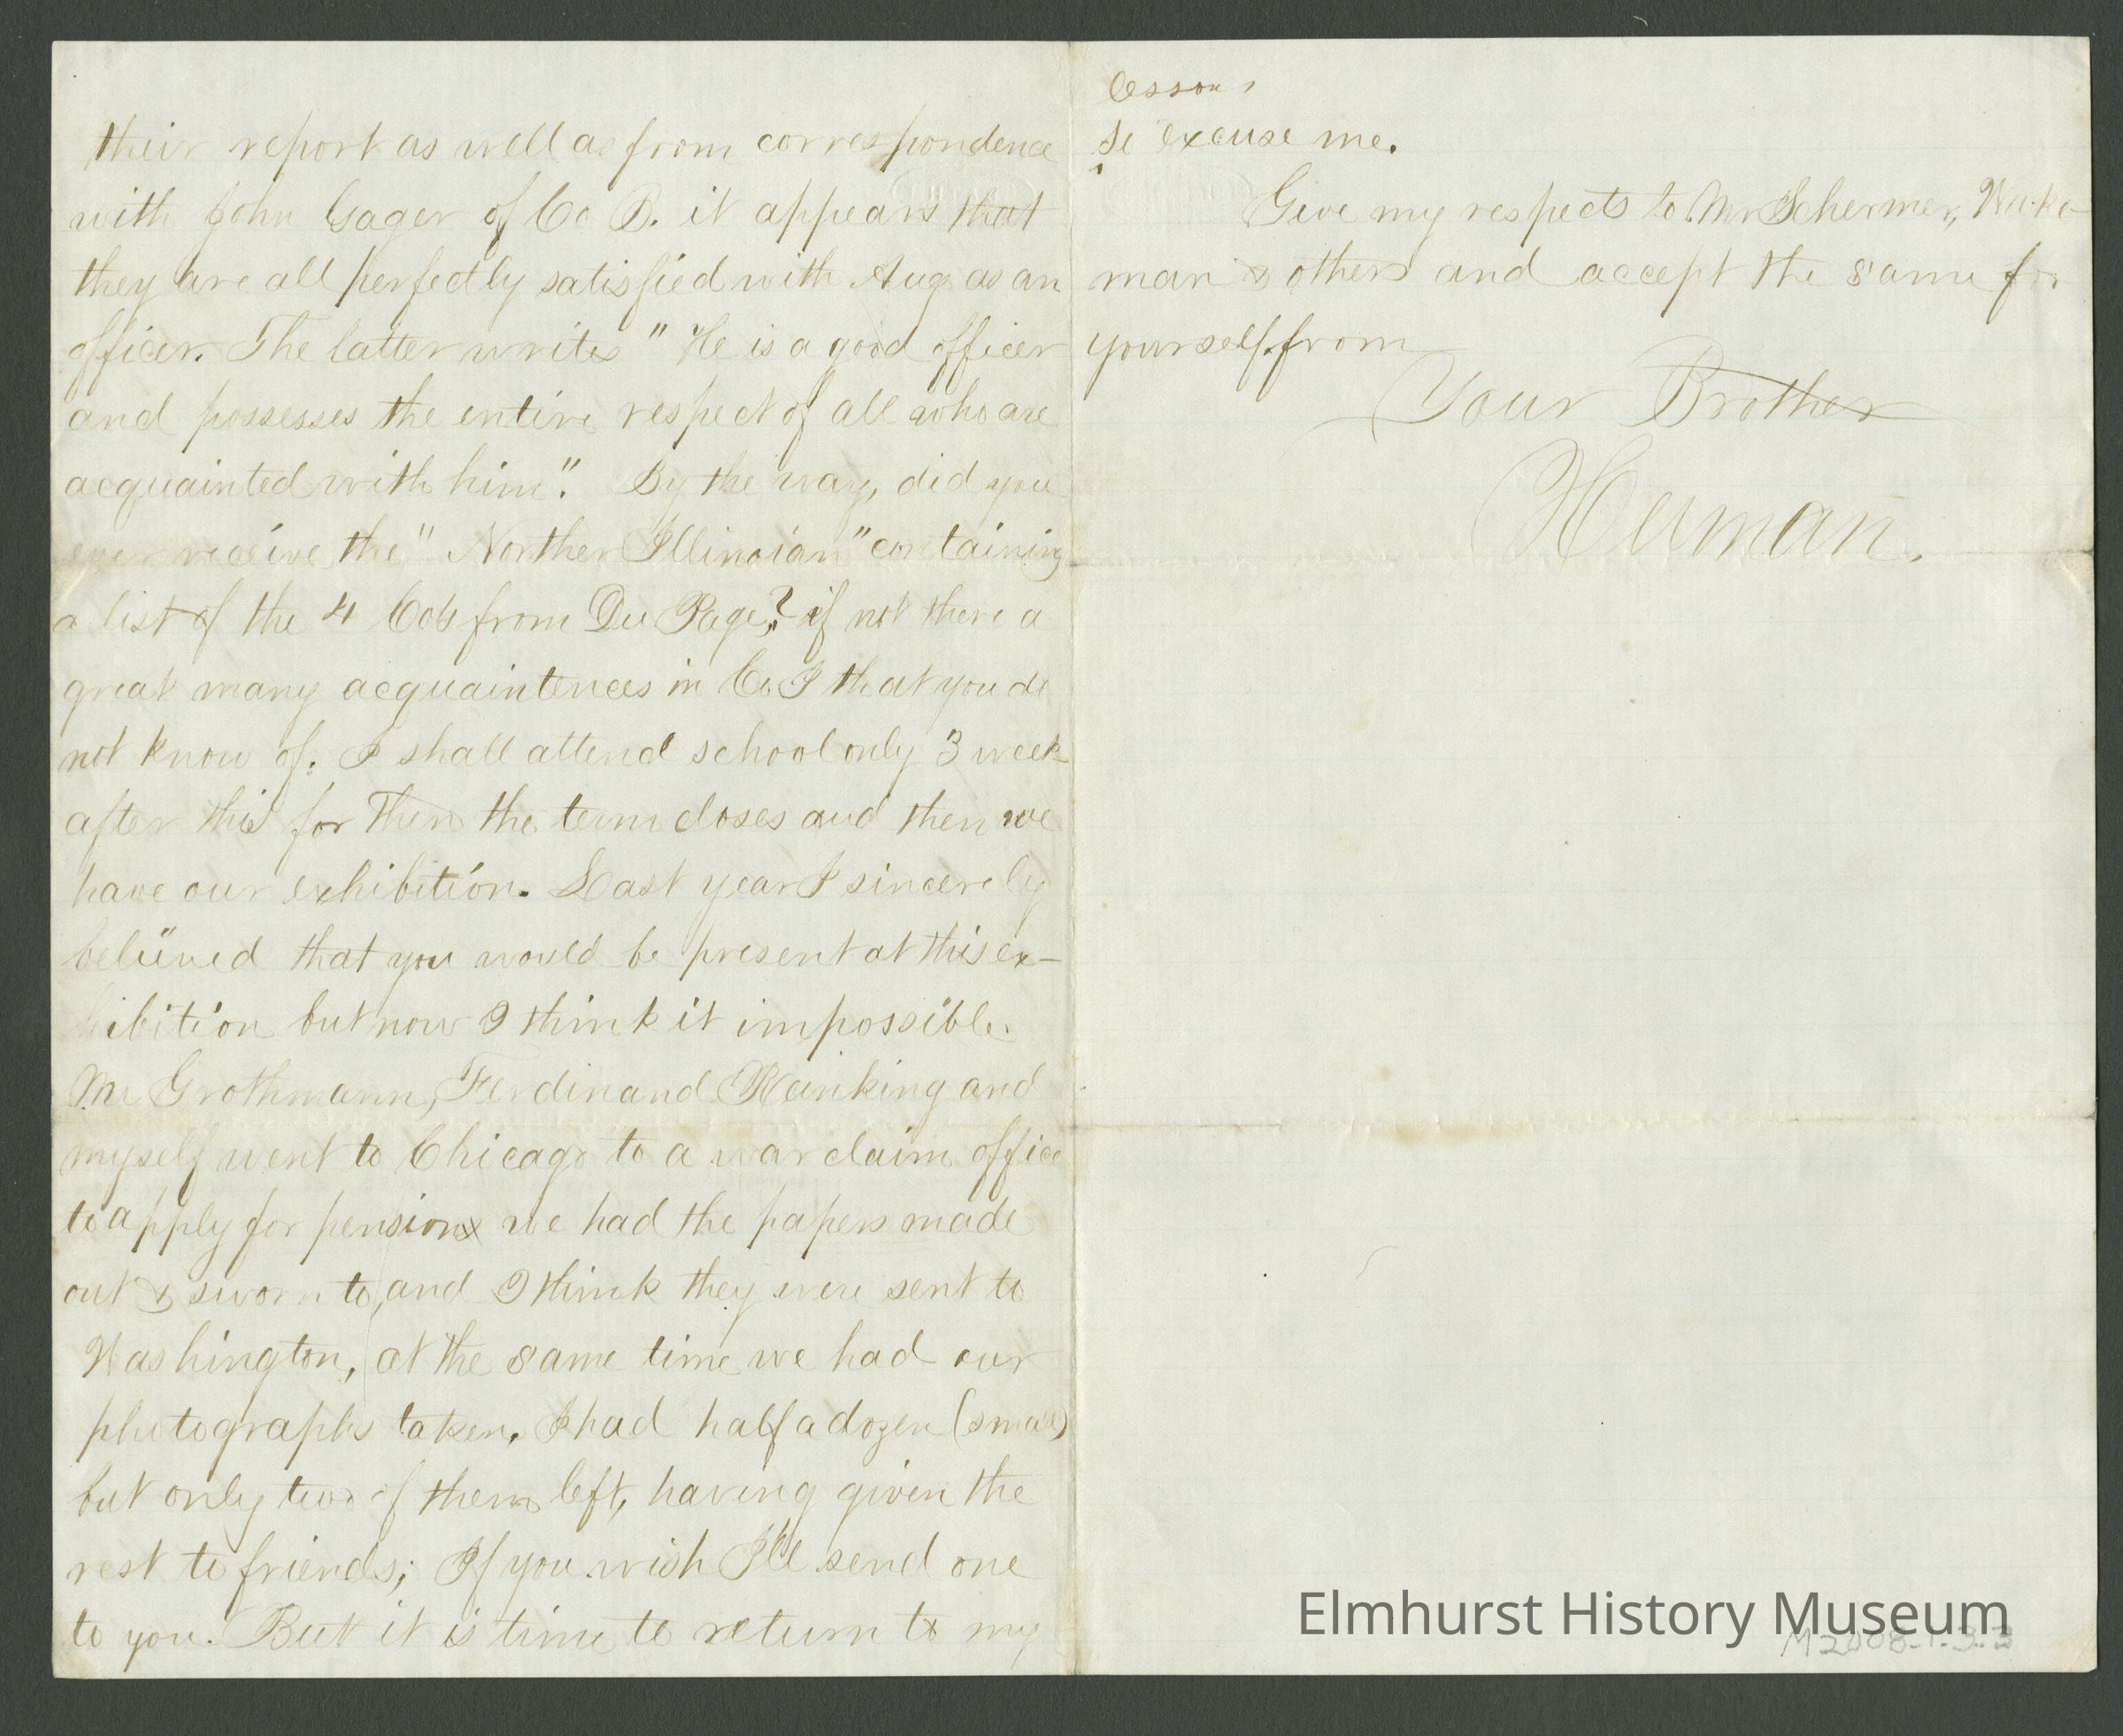 their report as well as from correspondence
with John Gager of Co B. it appears that
they are all perfectly satisfied with Aug as an
officer. The latter writes "He is a good officer
and possesses the entire respect of all who are
acquainted with him". By the way, did you
ever receive the "Northern Illinoian" containing
a list of the 4 Co's from Du Page? if not there a
great many acquaintences in Co I that you do
not know of. I shall attend school only 3 week
after this for then the term closes and then we
have our exhibition. Last year I sincerely
believed that you would be present at this ex-
hibition but now I think it impossible.
Mr Grothmann, Ferdinand Reinking and
myself went to Chicago to a war claim office
to apply for pension we had the papers made
out & sworn to, and I think they were sent to
Washington, at the same time we had our
photographs taken. I had half a dozen (small)
but only two of them left, having given the
rest to friends; If you wish I'll send one
to you. But it is time to return to my
lesson,
so excuse me.
Give my respects to Mr Schermer,
man & others and accept the same for
yourself from
Your Brother
Herman.
Elmhurst History Museum
M2008.1.3.3